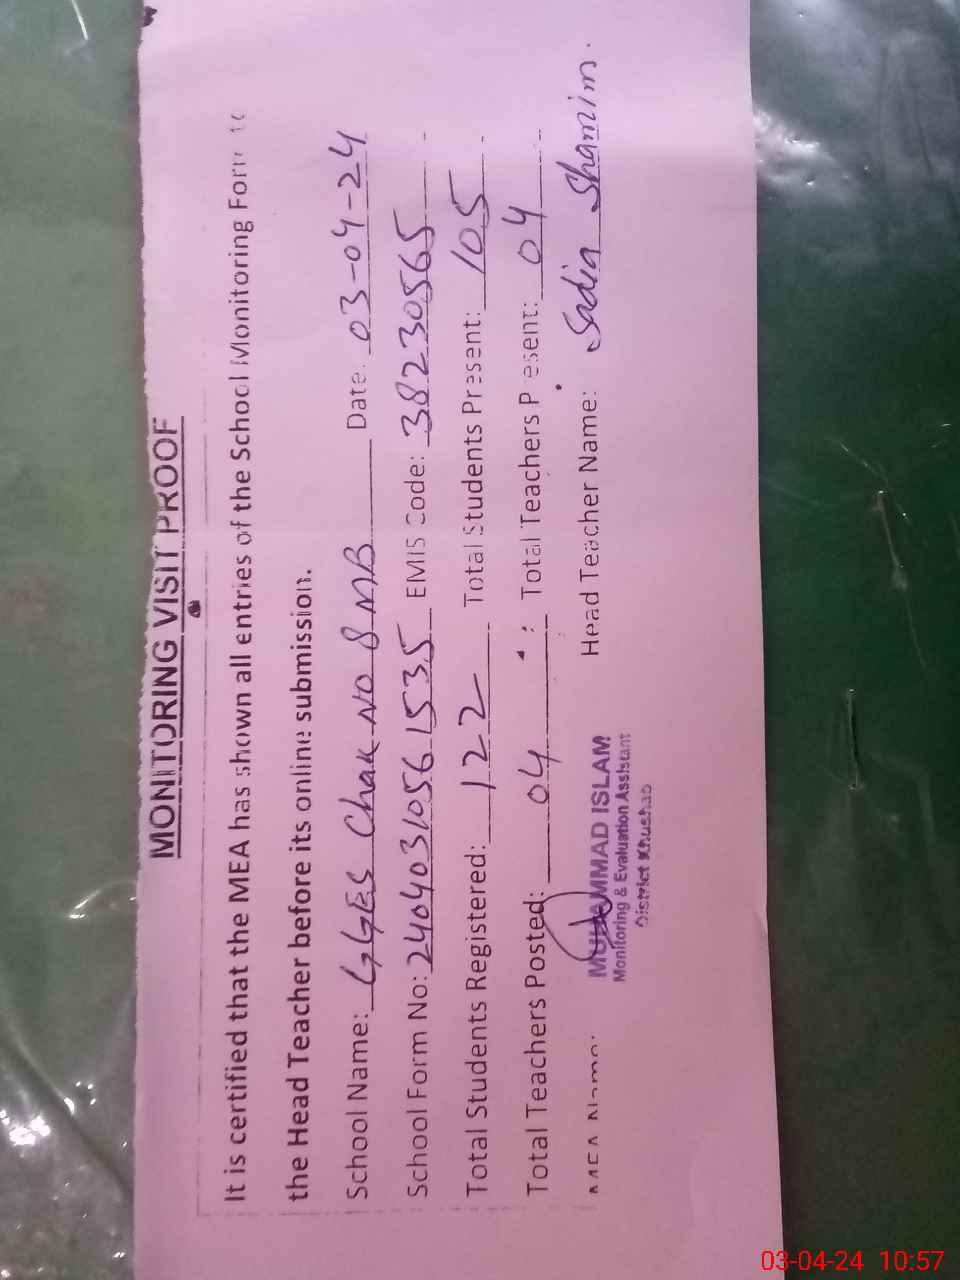 MONITORING VISIT PROOF
It is certified that the MEA has shown all entries of the School Monitoring Form to
the Head Teacher before its online submission.
School Name: GGES Chak No 8 MB Date: 03-04-24
School Form No: 24040310561535 EMIS Code: 38230565
Total Students Registered: 122 Total Students Present: 105
Total Teachers Posted: 04 Total Teachers Present: 04
MEA Name: MUHAMMAD ISLAM Head Teacher Name: Sadia Shamim.
Monitoring & Evaluation Assistant
District Khushab
03-04-24 10:57